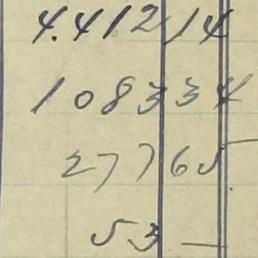 4.412 14
1083 34
277 65
53 —